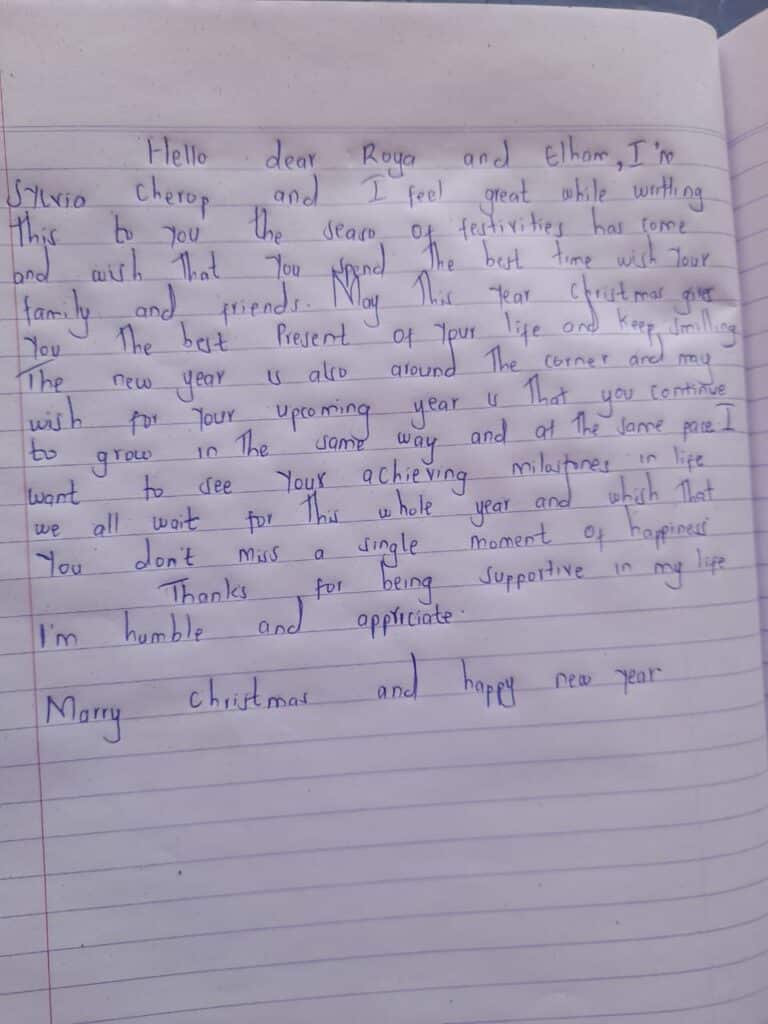 Hello dear Roya and Elham, I'm
Sylvia Cherop and I feel great while writting
This to you the seaso of festivities has come
and wish That You spend The best time wish Your
family and friends. May This Year Christmas gives
You The best Present of Your life and keep smilling
The new year is also around The corner and may
wish for Your upcoming year is That you continue
to grow in The same way and at The same pace I
want to see Your achieving milaistones in life
we all wait for This whole year and whish That
You don't miss a single moment of happiness
Thanks for being supportive in my life
I'm humble and appriciate.
Marry christmas and happy new year